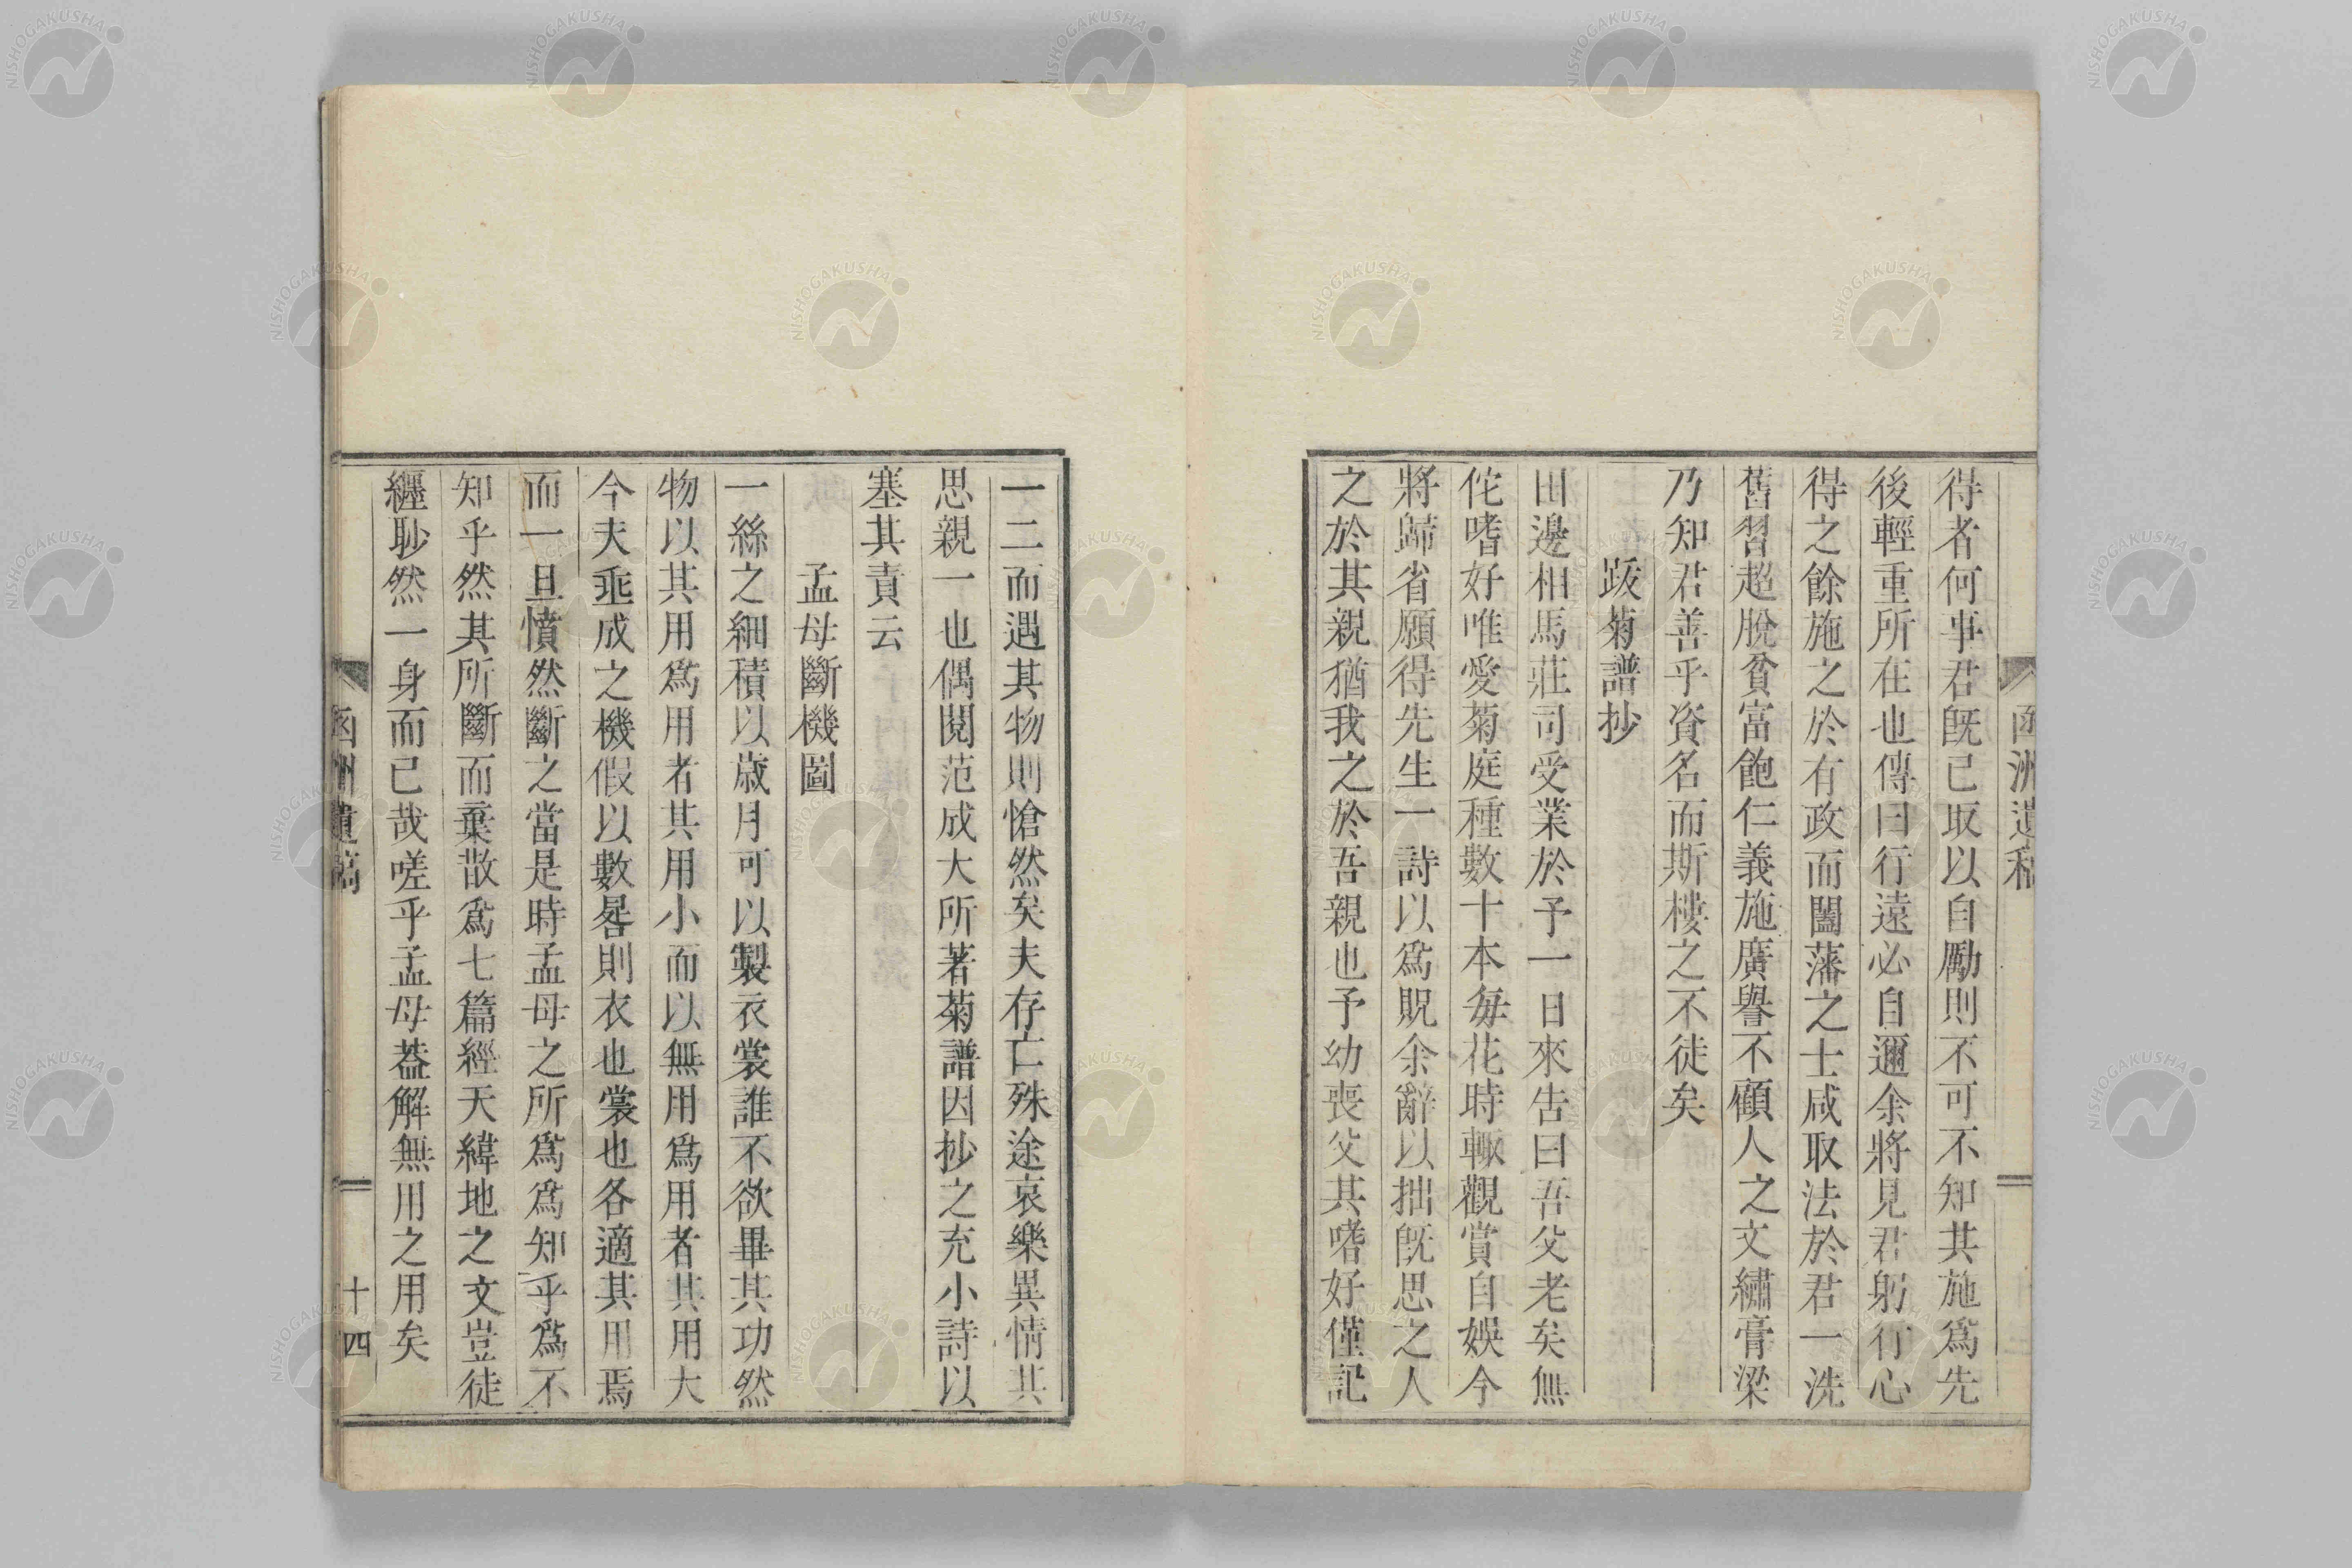 函洲遺稿
得者何事君既已取以自勵則不可不知其施爲先
後輕重所在也傳曰行遠必自邇余將見君躬行心
得之餘施之於有政而闔藩之士咸取法於君一洗
舊習超脫貧富飽仁義施廣譽不顧人之文繡膏梁
乃知君善乎資名而斯樓之不徒矣
跋菊譜抄
田邊相馬莊司受業於予一日來告曰吾父老矣無
佗嗜好唯愛菊庭種數十本每花時輙觀賞自娛今
將歸省願得先生一詩以爲貺余辭以拙既思之人
之於其親猶我之於吾親也予幼喪父其嗜好僅記
一二而遇其物則愴然矣夫存亡殊途哀樂異情其
思親一也偶閱范成大所著菊譜因抄之充小詩以
塞其責云
孟母斷機圖
一絲之細積以歳月可以製衣裳誰不欲畢其功然
物以其用爲用者其用小而以無用爲用者其用大
今夫乖成之機假以數晷則衣也裳也各適其用焉
而一旦憤然斷之當是時孟母之所爲爲知乎爲不
知乎然其所斷而棄散爲七篇經天緯地之文豈徒
纒眇然一身而已哉嗟乎孟母葢解無用之用矣
函洲遺稿
十四
NISHOGAKUSHA